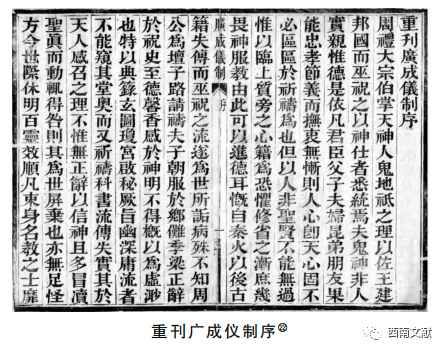 重刊廣成儀制序
周禮大宗伯掌天神人鬼地祇之理以佐王建
邦國而巫祝之以神仕者悉統焉夫鬼神非人
實親惟德是依凡君臣父子夫婦昆弟朋友果
能忠孝節義而撫衷無慚則人心卽天心固不
必區區於祈禱爲也但以人非聖賢不能無過
惟以臨上質旁之心藉爲恐懼修省之漸庶幾
畏神服教由此可以進德耳慨自秦火以後古
廣成儀制 序
籍失傳而巫祝之流遂爲世所詬病殊不知周
公爲壇子路請禱夫子朝服於鄉儺季梁正辭
於祝史至德馨香感於神明不得概以爲虛渺
也特以典籙玄圖瓊宮啟秘厥旨幽深庸流者
不能窺其堂奧而又祈禱科書流傳失實其於
天人感召之理不惟無正辭以信神且多冒瀆
聖眞而動輒得咎則其爲世屏棄也亦無足怪
方今世際休明百靈效順凡束身名教之士靡
重刊广成仪制序㉒
西南文献